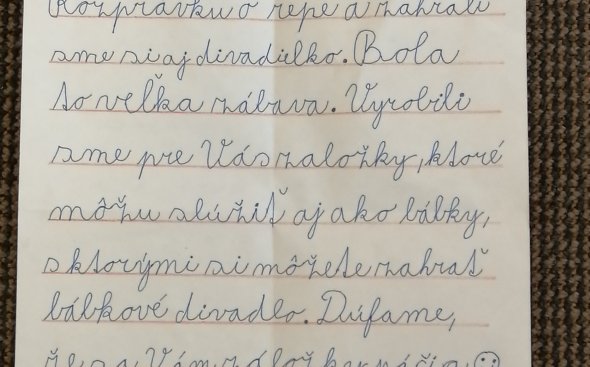 Rozprávku o repe a zahrali
sme si aj divadielko. Bola
to veľka zábava. Vyrobili
sme pre Vás založky, ktoré
môžu slúžiť aj ako bábky,
s ktorými si môžete zahrať
bábkové divadlo. Dúfame,
že sa Vám záložky páčia ☺